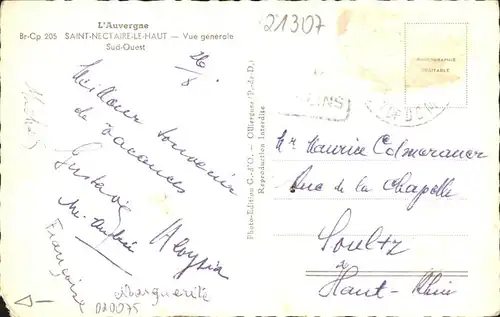 L'Auvergne
Br-Cp 205 SAINT-NECTAIRE-LE-HAUT — Vue générale
Sud-Ouest
21307
26/8
Meilleur souvenir
de vacances
Gustave
Aloysia
Françoise
Marguerite
020075
Photo-Edition G. d'O. - Olliergues (P.-de-D.)
Reproduction Interdite
PHOTOGRAPHIE
VERITABLE
Mr Maurice Colmerauer
Rue de la Chapelle
Soultz
Haut-Rhin